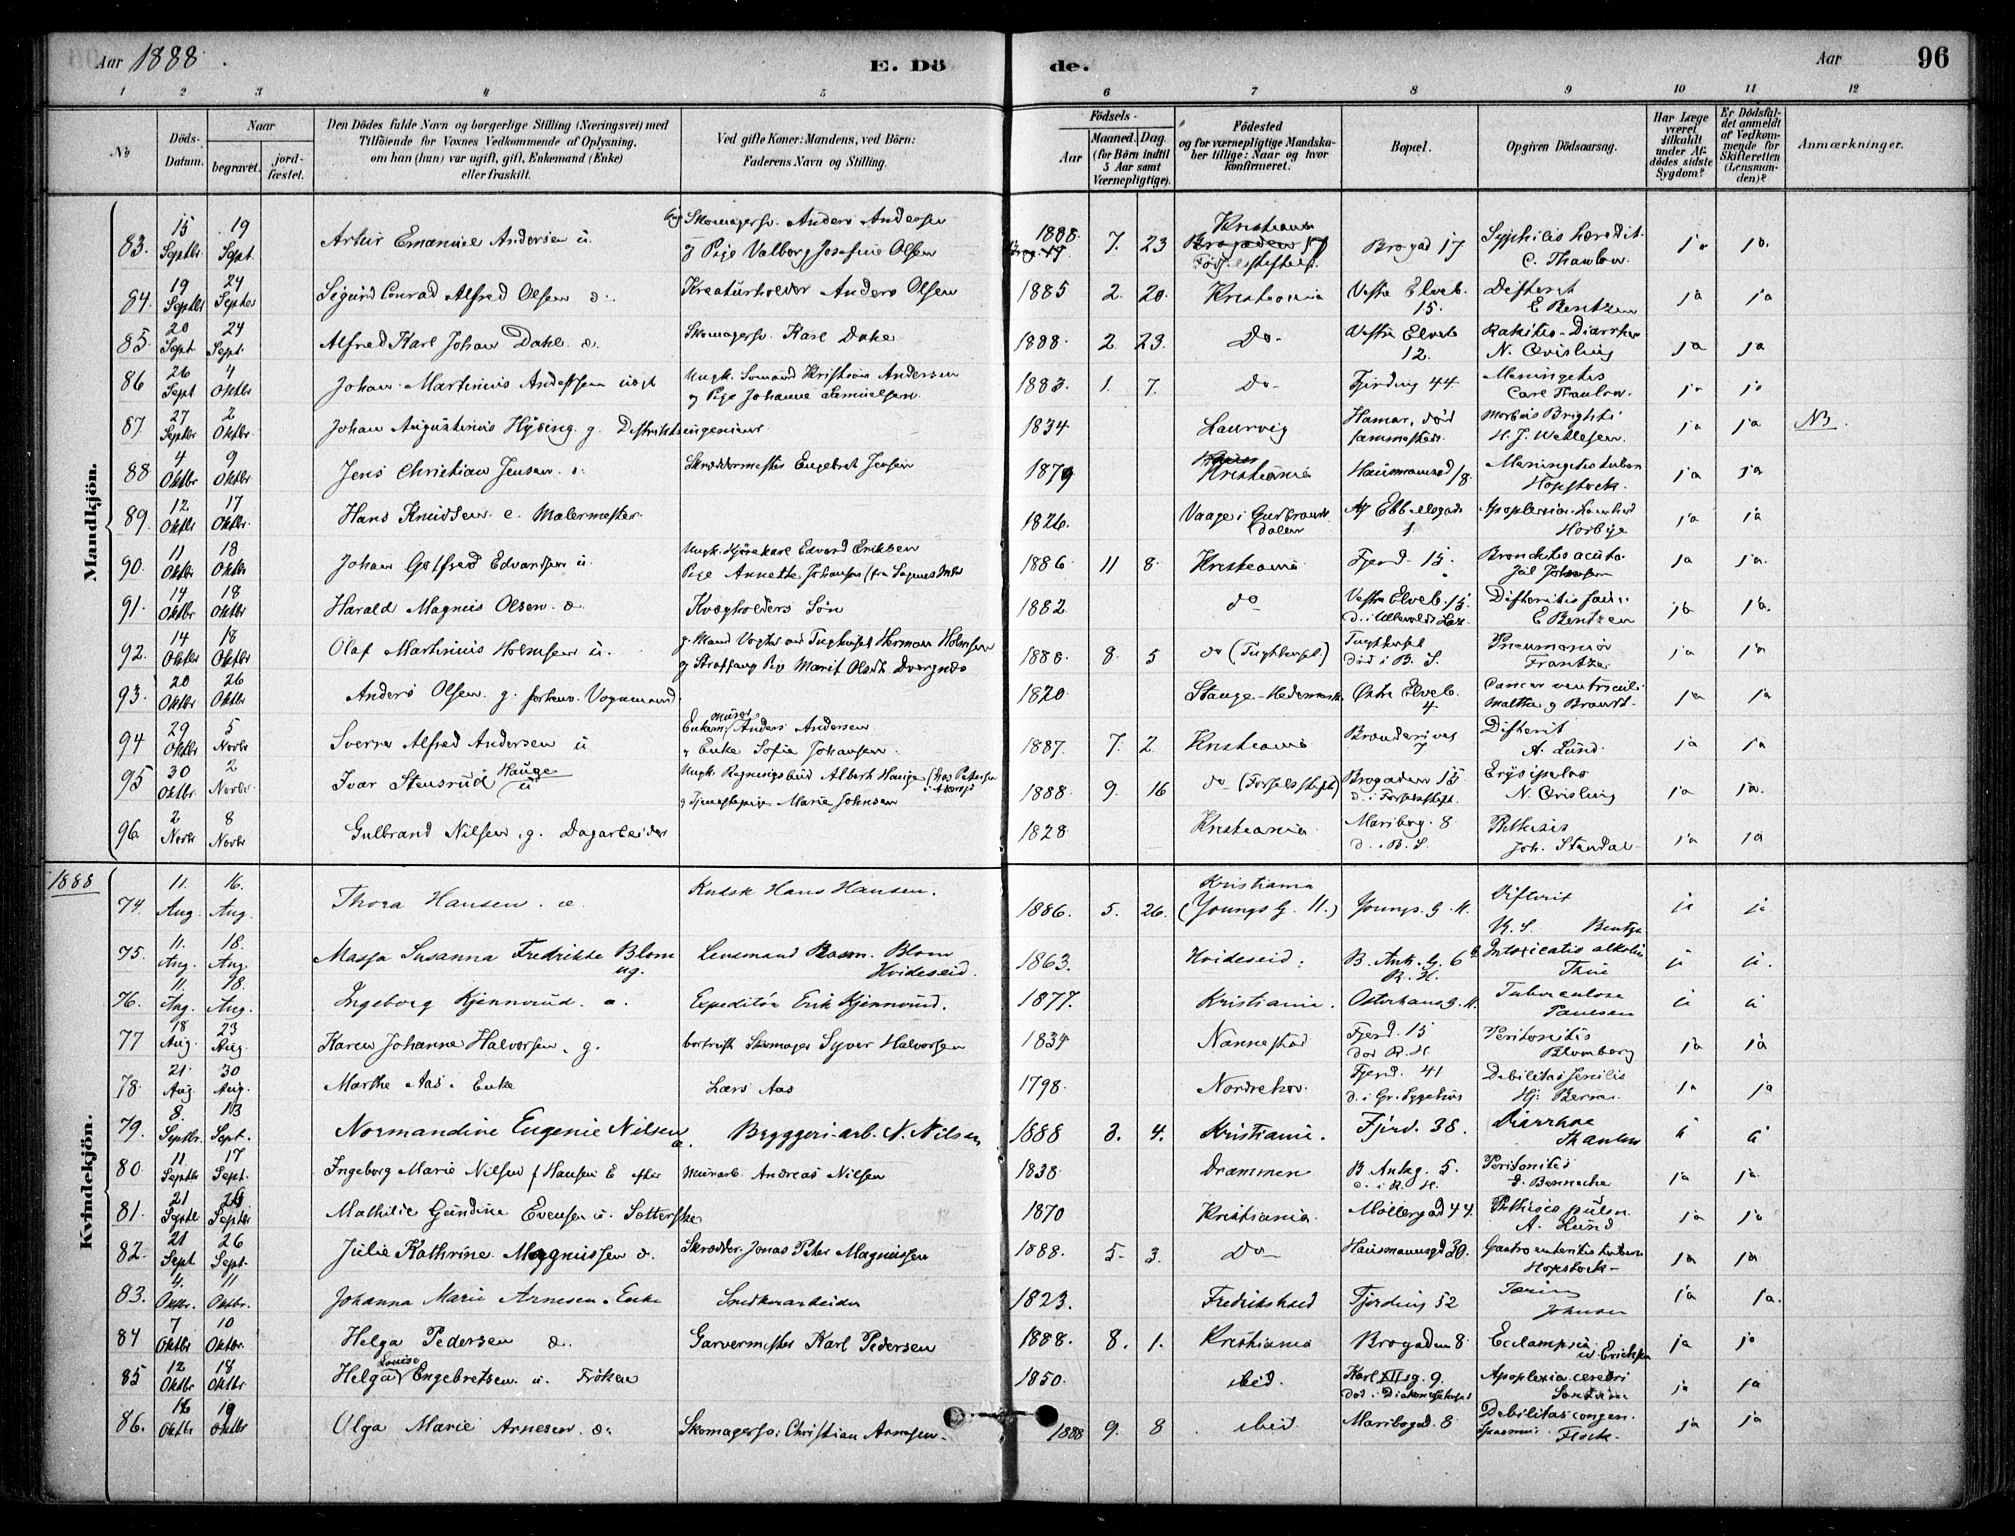 Aar 1888.
E. Dö de.
Aar
96
1 2 3 4 5 6 7 8 9 10 11 12
No
Döds-Datum.
Naar
begravet.
jord-fæstet.
Den Dödes fulde Navn og borgerlige Stilling (Næringsvei) med
Tilföiende for Voxnes Vedkommende af Oplysning.
om han (hun) var ugift, gift, Enkemand (Enke)
eller fraskilt.
Ved gifte Koner: Mandens, ved Börn:
Faderens Navn og Stilling.
Födsels-
Aar
Maaned. Dag.
(for Börn indtil
5 Aar samt
Værnepligtige).
Födested
og for værnepligtige Mandska-
ber tillige: Naar og hvor
konfirmeret.
Bopæl.
Opgiven Dödsaarsag.
Har Læge
været
tilkaldt
under Af-
dödes sidste
Sygdom?
Er Dödsfal-
det anmeldt
af Vedkom-
mende for
Skifteretten
(Lensman-
den)?
Anmærkninger.
Mandkjön.
83. 15 Septbr. 19 Sept. Artur Emanuel Andersen u. Skomagersv. Anders Andersen
og Pige Valborg Josefine Olsen 1888. 7. 23 Kristiania Brogad 17 Syphilis heredit.
C. Thaulow. ja ja.
84. 19 Septbr 24 Septbr Sigurd Conrad Alfred Olsen æ. Kreaturholder Anders Olsen 1885 2. 20. Kristiania Vestre Elveb. 15. Difterit
E Bentzen ja ja
85. 20 Sept. 24 Sept. Alfred Karl Johan Dahl æ. Skomagersv. Karl Dahl 1888. 2. 23. Do. Vestre Elveb 12. Rakitis-Diarrhoe
N. Qvisling ja ja
86 26 Sept 4 Oktbr. Johan Martinius Anderssen uægt Ungk. Sømand Kristian Andersen
og Pige Johanne Samuelsen. 1883. 1. 7. Do. Fjerding 44. Meningitis
Carl Thaulow. ja ja
87. 27 Septbr 2 Oktbr. Johan Augustinus Hysing. g. Distriktsingeniør 1834 Laurvig Hamar, død
sammesteds. Morbus Brightii
H. J. Vetlesen. ja ja N3.
88 4 Oktbr 9 Oktbr. Jens Christian Jensen. Skræddermester Engebret Jensen 1879 Kristiania Hausmannsgd 18. Meningitis tuber.
Hopstock. ja ja
89. 12 Oktbr 17 Oktbr. Hans Knudsen e. Malermester. 1826. Vaage i Gudbrands-
dalen 1 Apoplexia
Horbye ja ja
90. 11 Oktbr 18 Oktbr. Johan Gotfred Edvardsen u. Ungk. Kjørekarl Edvard Eriksen
Pige Annette Johansen 1886. 11 8. Kristiania Fjerd. 15. Bronchitis acuta ja ja.
91. 14 Oktbr 18 Oktbr Harald Magnus Olsen. æ. Kvægholders Søn 1882 do Vestre Elveb. 15.
d. i Ullevolds Laz. Difteritis
E Bentzen ja ja.
92. 14 Oktbr 18 Oktbr. Olaf Martinius Holmsen u. g. Mand Vogter ved Tugthuset Herman Holmsen
og Straffang Pige Marit Olsdt 1888. 8. 5 do (Tugthuset) Tugthuset
Død i B. S. Pneumonia
Frantzen ja ja
93. 20 Oktbr 26 Oktbr. Anders Olsen. g. forhenv. Vognmand. 1820 Stange-Hedemarken Østre Elveb. 4 Cancer ventriculi
Malthe og Brandt. ja ja
94 29 Oktbr 5 Novbr. Sverre Alfred Andersen u Enkem. Murer Anders Andersen
og Enke Sofia Johansen. 1887. 7. 2 Kristiania 7 Difterit
A. Lund. ja ja
95 30 Oktbr. 2 Novbr. Ivar Stensrud Hauge u Ungk. Regningsbud Albert Hauge
og Tjenestepige Marie Johnsen 1888. 9. 16 do (Fødselsstift.) Brogaden 15
d. i Fødselsstift. Erysipelas
N. Qvisling ja ja.
96. 2 Novbr 8 Novbr Gulbrand Nilsen. g. Dagarbeider 1828 Kristiania. Maribog. 8
d. i B. S. Phthisis
Joh. Standal ja ja
1888
Kvindekjön.
74. 11. Aug. 16. Aug. Thora Hansen. æ. Kudsk Hans Hansen. 1886. 5. 26. Kristiania
(Youngs G. 11.) Youngs. G. 11. Difterit
Bentzen ja ja
75. 11. Aug. 18. Aug. Massa Susanna Fredrikke Blom
ug. Lensmand Rasm. Blom
Hvideseid. 1863. Hvideseid. B. Ank. G. 6 b
R. H. Intoxicatio alkohol.
Thue ja ja.
76. 11 Aug. 18. Aug. Ingeborg Kjennerud. æ. Expeditør Erik Kjennerud. 1877. Kristiania. Osterhausg. 11. Tuberculose
Paulsen ja ja
77 18 Aug. 23 Aug Karen Johanne Halvorsen. g. bortreist Skomager Syver Halvorsen 1834 Nannestad Fjerd. 15
død R. H Peritonitis
Blomberg ja ja
78. 21. Aug 30 Aug. Marthe Aas. Enke Lars Aas 1798. Nordrehov. Fjerd. 41
d. i Gr. Sygehus Debilitas senilis ja ja
79. 8. Septbr. 13 Sept. Normandine Eugenie Nilsen æ. Bryggeri-arb. N. Nilsen 1888 3. 4. Kristiania. Fjerd. 38. Diarrhoe
Thaulow ja ja
80. 11 Septbr 17 Sept. Ingeborg Marie Nilsen f Hansen E efter Murarb. Andreas Nilsen 1838. Drammen B Ankg. 5.
d. i R. H. Peritonitis ja ja
81. 21 Septbr 26 Septbr Mathilde Gundine Evensen u. 1870 Kristiania. Møllergad 44. Phthisis pulm
A. Lund ja ja
82. 21 Sept. 26 Sept. Julie Kathrine Magnussen æ. Skrædder Jonas Peter Magnussen 1888. 5. 3. Do Hausmannsgd 30. Gastro enteritis
Hopstock. ja ja
83. 4. Oktbr. 11 Oktbr. Johanna Marie Arnesen. Enke Snedkerarbeider 1823. Fredrikshald Fjerding 52 Tæring
Johnsen ja ja.
84 7 Oktbr 10 Oktbr. Helga Pedersen æ. Garvermester Karl Pedersen 1888. 8. 1. Kristiania Brogaden 8 Eclampsia
Erichsen ja ja
85 12 Oktbr 18 Oktbr Helga Louise Engebretsen. u. Frøken 1850. ibid. Karl XII g. 9.
død i Diakonissehuset Apoplexia cerebri ja ja
86. 16 Oktbr 19 Oktbr Olga Marie Arnesen. æ. Skomagersv. Christian Arnesen. 1888 9. 8 ibid. Maribogd. 8 Debilitas congen.
Flock. ja ja